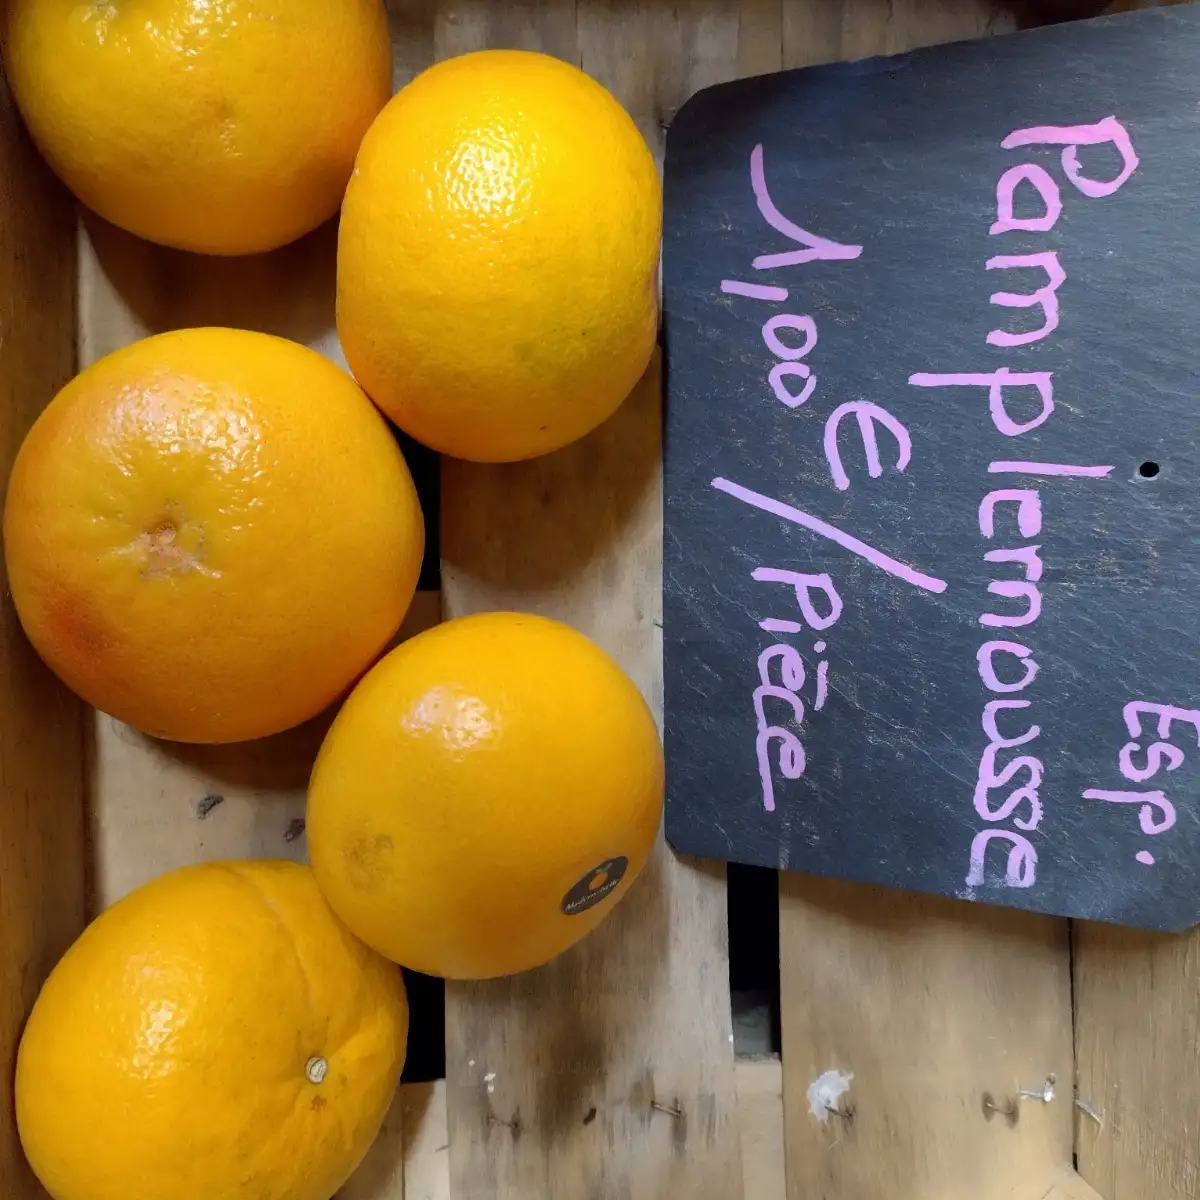 Esp.
Pamplemousse
1,00€/Pièce